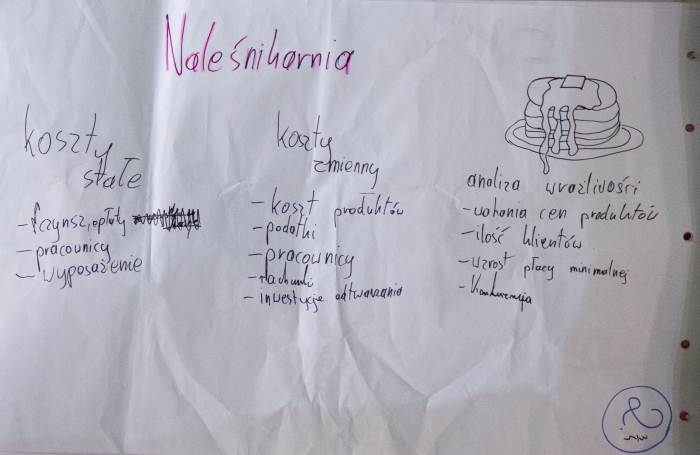 Naleśnikarnia
koszty
stałe
- czynsz, opłaty
- pracownicy
- wyposażenie
koszty
zmienny
- koszt produktów
- podatki
- pracownicy
- rachunki
- inwestycje odtwarzania
analiza wrażliwości
- wahania cen produktów
- ilość klientów
- wzrost płacy minimalnej
- Konkurencja